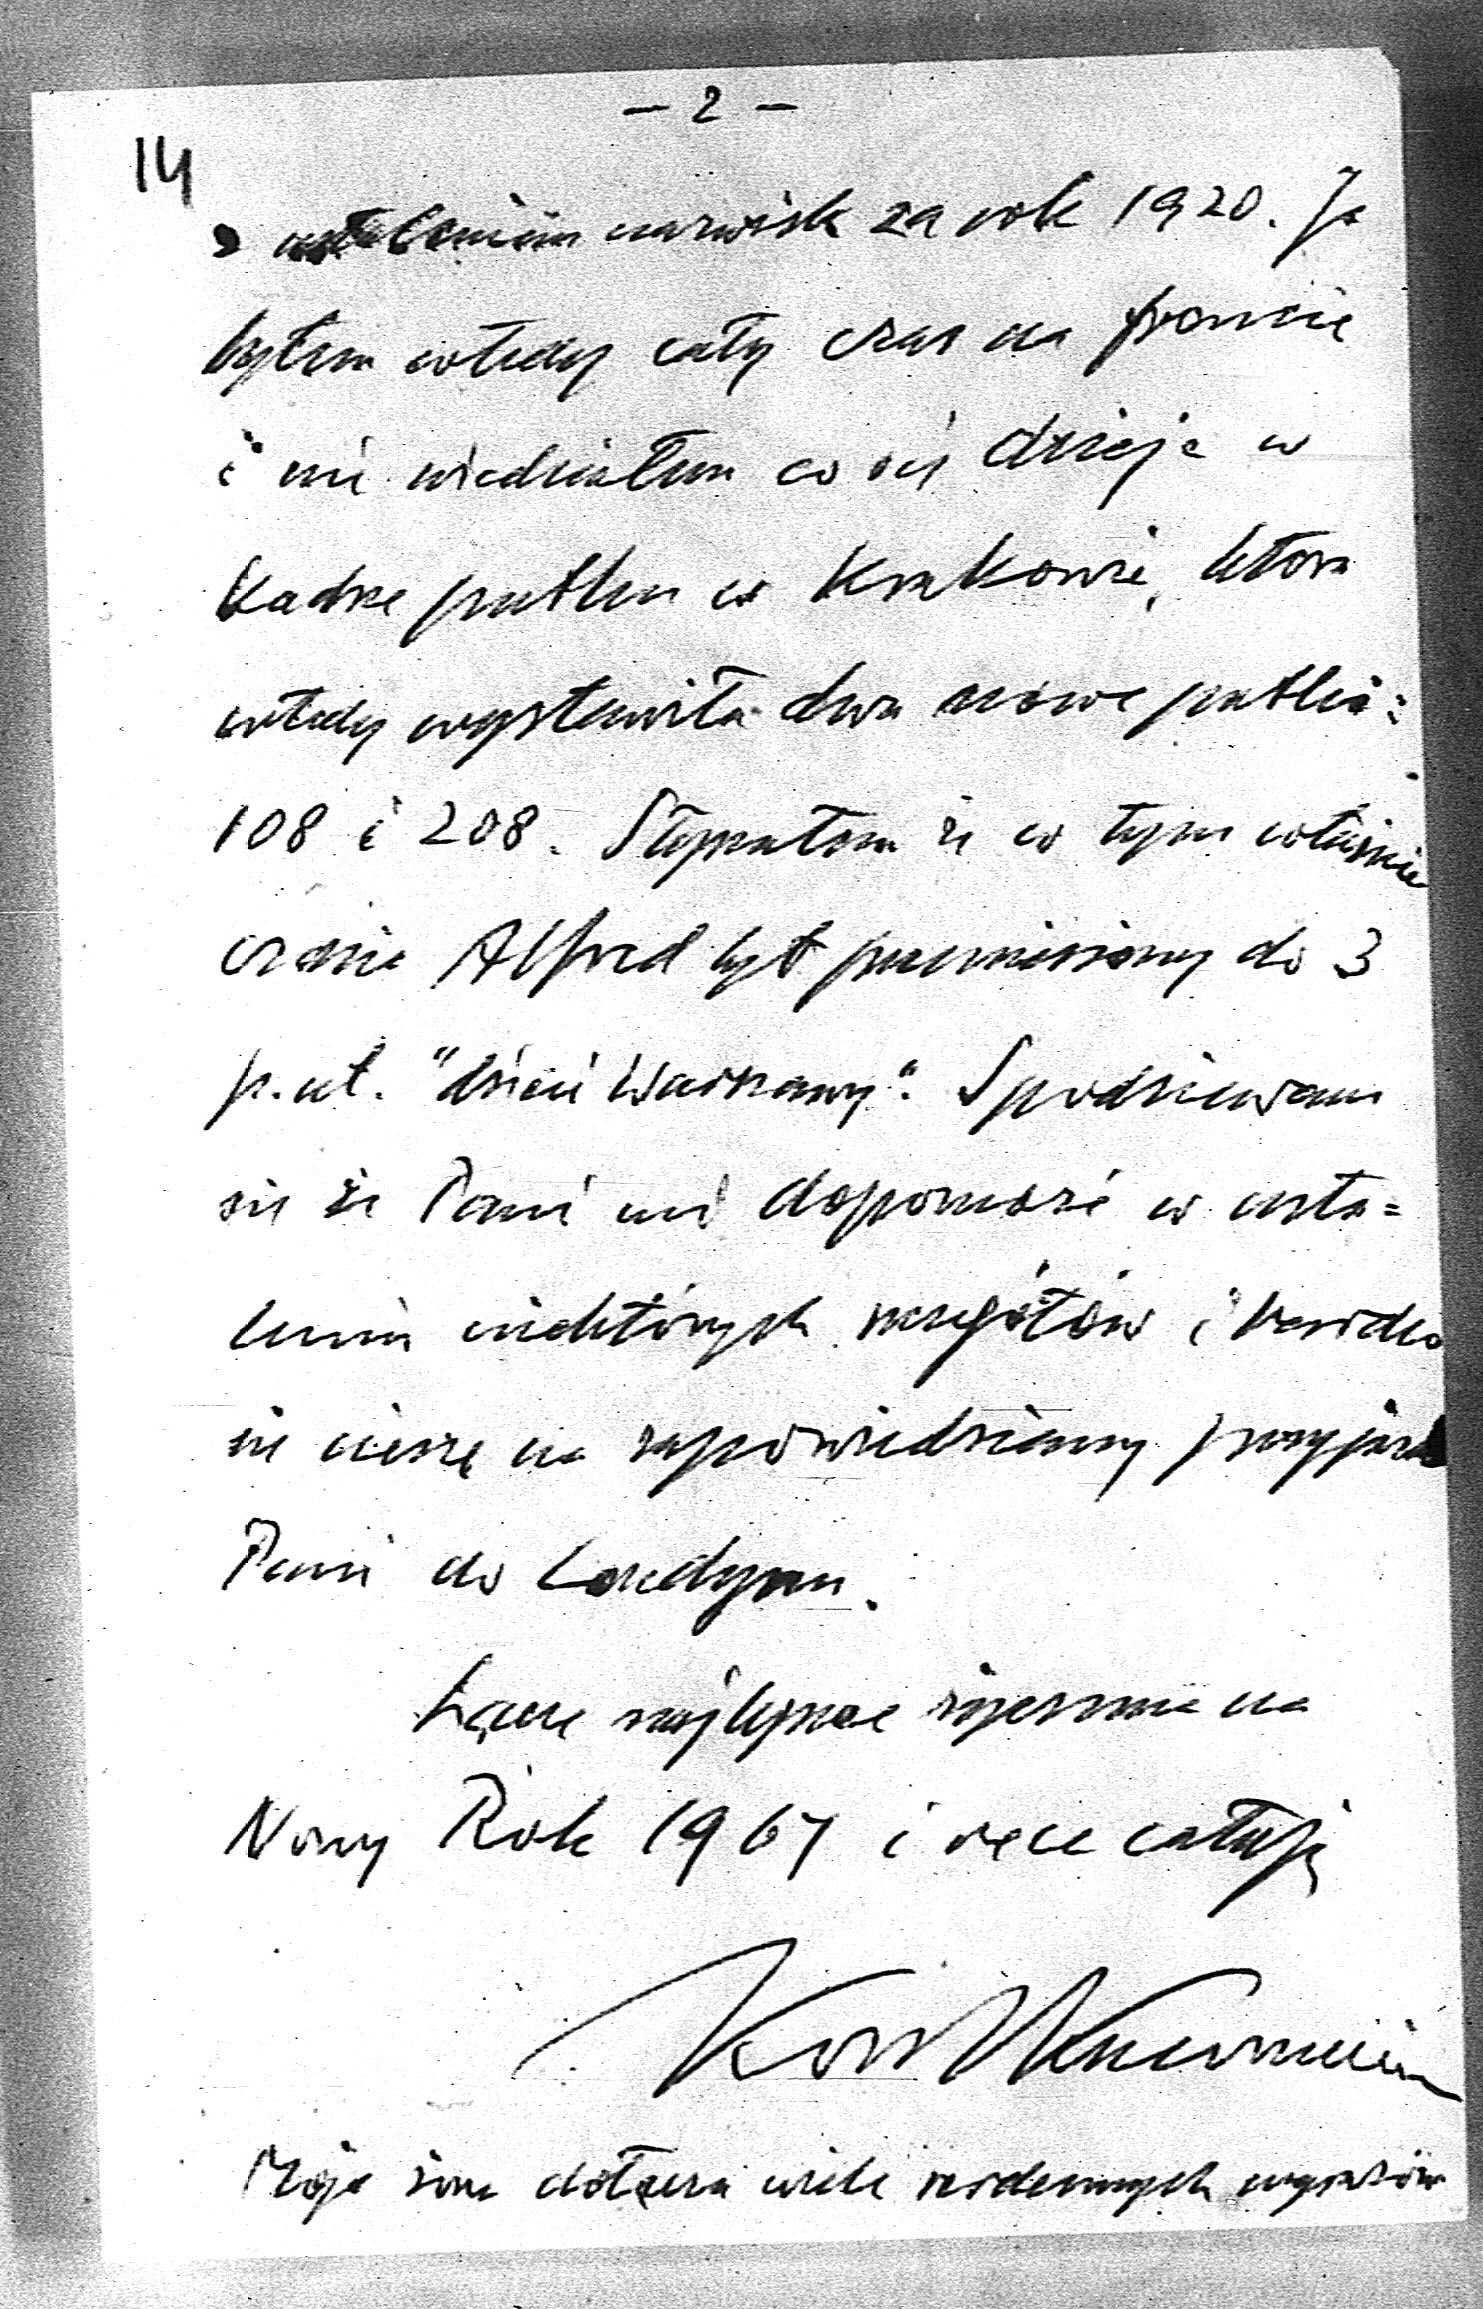 — 2 —
14
z ustaleniem nazwisk za rok 1920. Ja
byłem wtedy cały czas na froncie
i nie wiedziałem co się dzieje w
Kadrze pułku w Krakowie, która
wtedy wystawiła dwa nowe pułki:
108 i 208. Słyszałem że w tym właśnie
czasie Alfred był przeniesiony do 3
p. uł. "dzieci Warszawy". Spodziewam
się że Pani mi dopomoże w usta=
leniu niektórych szczegółów i bardzo
się cieszę na zapowiedziany przyjazd
Pani do Londynu.
Łączę najlepsze życzenia na
Nowy Rok 1967 i ręce całuję
Moja żona dołącza wiele serdecznych wyrazów